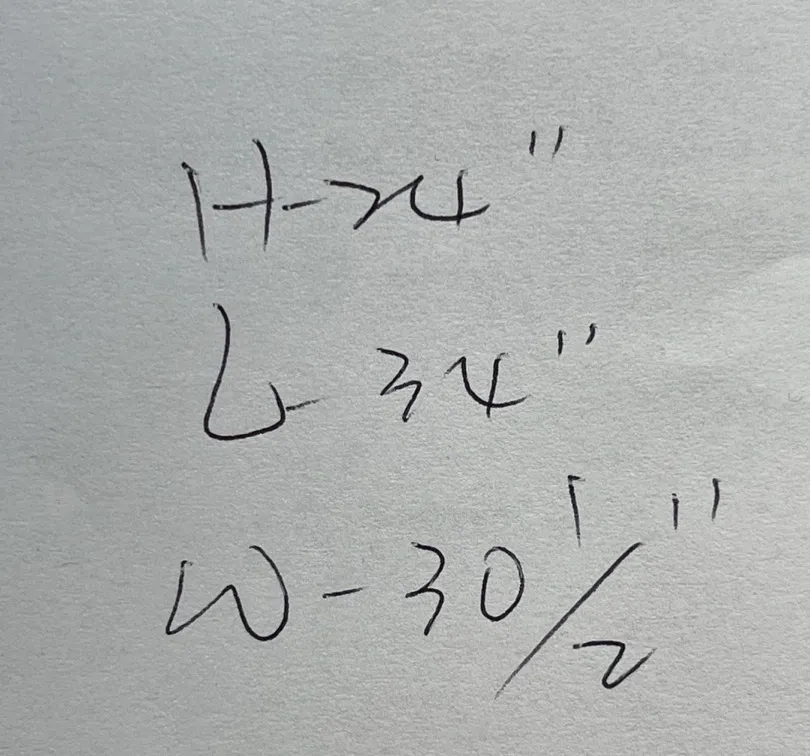 H-24"
L-34"
W-30 1/2"